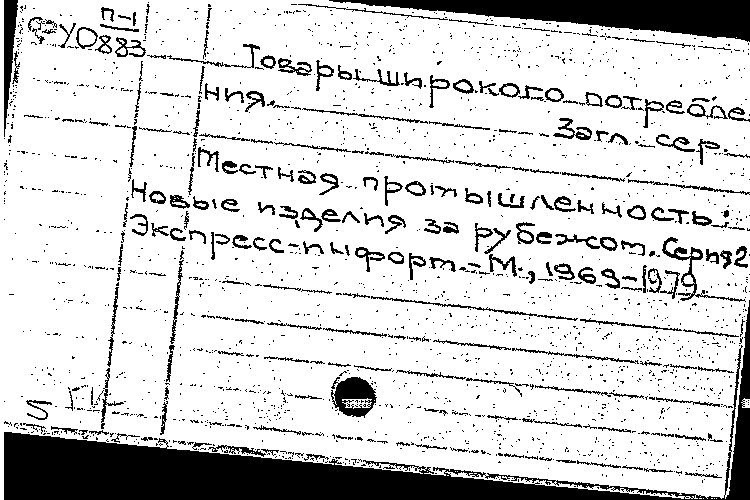 П-1
УО883
Товары широкого потребле
ния.
Загл. сер.
Местная промышленность:
Новые изделия за рубежом. Серия 2
Экспресс-информ.-М., 1969-1979.
5 ГИ